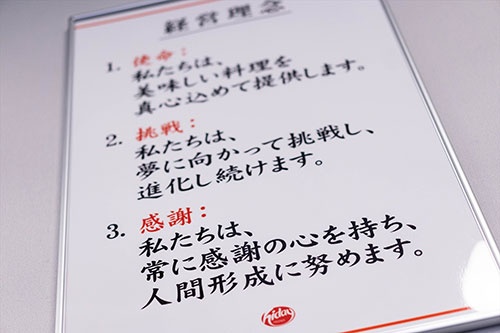 経営理念
1. 使命：
私たちは、
美味しい料理を
真心込めて提供します。
2. 挑戦：
私たちは、
夢に向かって挑戦し、
進化し続けます。
3. 感謝：
私たちは、
常に感謝の心を持ち、
人間形成に努めます。
hiday